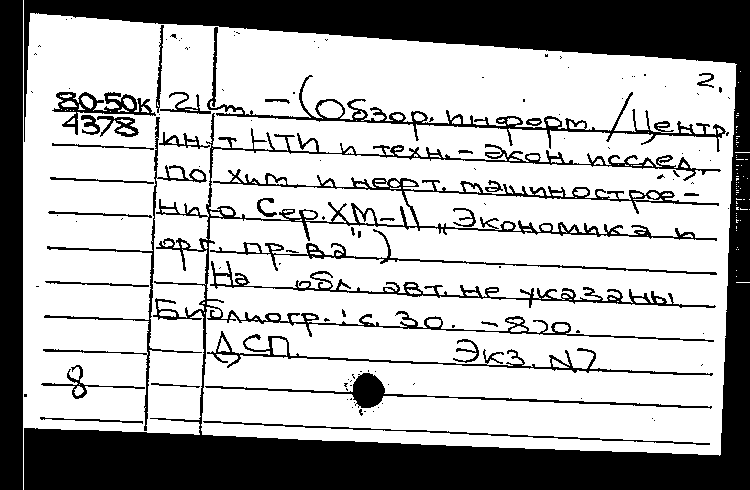 2.
80-50к 21 cm. – (Обзор. информ. / Центр.
4378
ин-т НТИ и техн.-экон. исслед.
по хим. и нефт. машинострое-
нию. Сер. ХМ-11 „Экономика и
орг. пр-ва")
На обл. авт. не указаны.
Библиогр.: с. 30. –
ДСП. Экз. N7
8